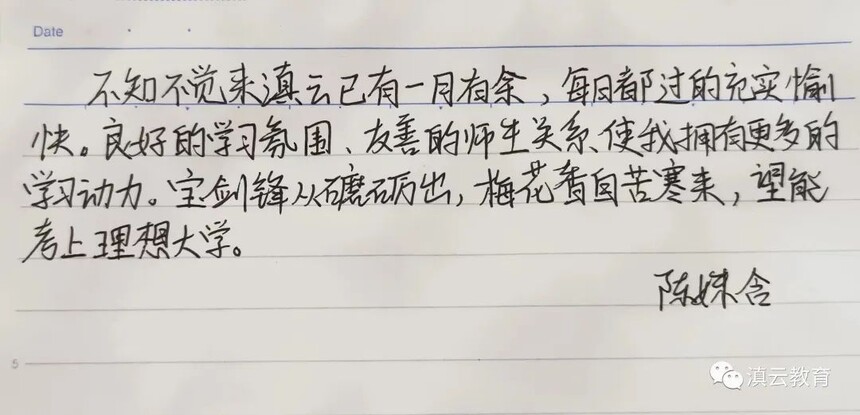 Date
不知不觉来滇云已有一月有余，每日都过的充实愉
快。良好的学习氛围、友善的师生关系、使我拥有更多的
学习动力。宝剑锋从磨砺出，梅花香自苦寒来，望能
考上理想大学。
陈姝含
5
滇云教育